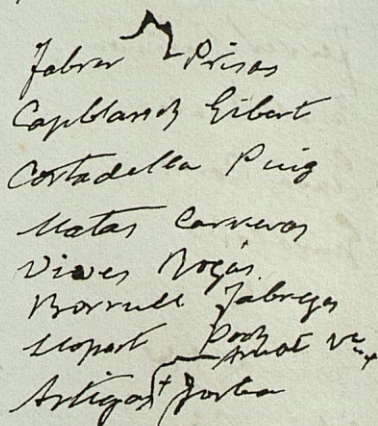 Fabrer Prisas
Capblanch Gibert
Cortadella Puig
Matas Carreras
Vives Rogés
Borrull Fabregas
Llopart Poch
Artigas Jorba